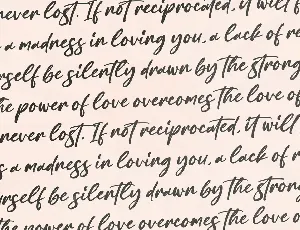 never lost. If not reciprocated, it will f
a madness in loving you, a lack of re
rself be silently drawn by the strong
he power of love overcomes the love of
never lost. If not reciprocated, it will
s a madness in loving you, a lack of r
urself be silently drawn by the stron
the power of love overcomes the love o